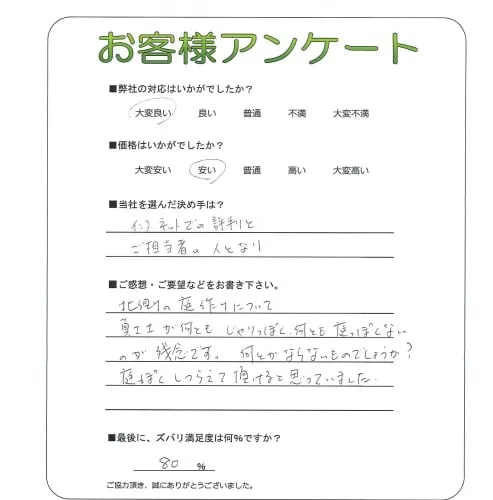 お客様アンケート
■弊社の対応はいかがでしたか？
大変良い 良い 普通 不満 大変不満
■価格はいかがでしたか？
大変安い 安い 普通 高い 大変高い
■当社を選んだ決め手は？
インターネットでの評判と
ご担当者の人となり
■ご感想・ご要望などをお書き下さい。
北側の庭作りについて
真土が何とも じゃりっぽく、何とも庭っぽくない
のが残念です。 何とかならないものでしょうか？
庭ぽくしつらえて頂けると思っていました。
■最後に、ズバリ満足度は何%ですか？
80 %
ご協力頂き、誠にありがとうございました。